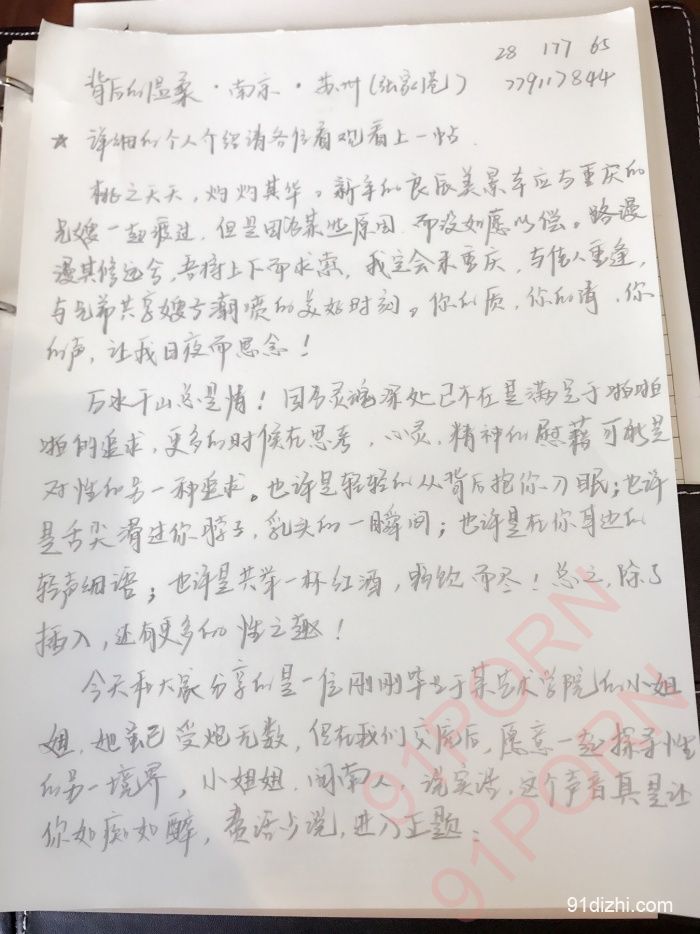 28 177 65
背后的温柔·南京·苏州(张家港) 779117844
★ 详细的个人介绍请各位看观看上一帖
桃之夭夭，灼灼其华。新年的良辰美景本应与重庆的
兄嫂一起疲过，但是因为某些原因，而没如愿以偿。路漫
漫其修远兮，吾将上下而求索，我定会来重庆，与佳人重逢，
与兄弟共享嫂子潮喷的美好时刻。你的质，你的清，你
的声，让我日夜而思念！
万水千山总是情！因为灵魂深处已不在是满足于啪啪
啪的追求，更多的时候在思考，心灵，精神的慰藉可能是
对性的另一种追求。也许是轻轻的从背后抱你入眠；也许
是舌尖滑过你脖子，乳头的一瞬间；也许是在你耳边的
轻声细语；也许是共举一杯红酒，畅饮而尽！总之，除了
插入，还有更多的性之趣！
今天和大家分享的是一位刚刚毕业于某艺术学院的小姐
姐，她虽已受炮无数，但在我们交流后，愿意一起探寻性
的另一境界，小姐姐，闽南人，说实话，这个声音真是让
你如痴如醉，费话少说，进入正题：
91PORN
91PORN
91dizhi.com